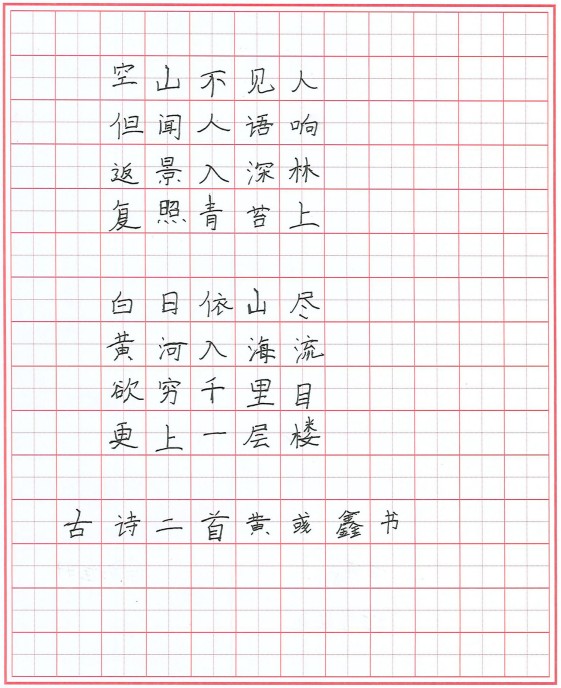 空山不见人
但闻人语响
返景入深林
复照青苔上
白日依山尽
黄河入海流
欲穷千里目
更上一层楼
古诗二首黄彧鑫书